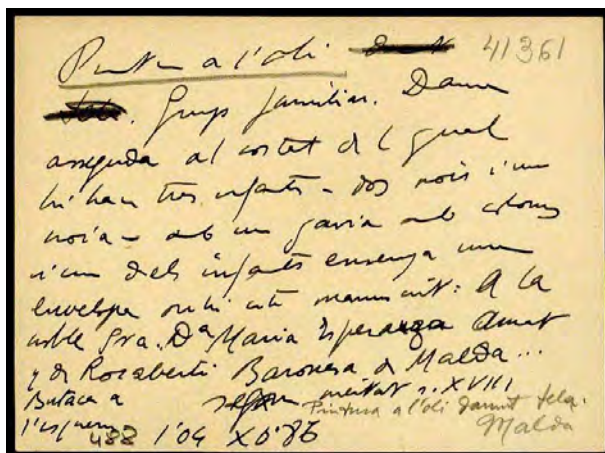 Pintura a l'oli 41361
Grup familiar. Dama
asseguda al costat del qual
hi han tres infants - dos nois i una
noia - amb un gavia amb coloms
i un dels infants ensenya una
envelopa on hi està manuscrit: A la
noble Sra. Dª Maria Esperanza Amat
y de Rocaberti Baronesa de Maldà...
Butaca a segona meitat s. XVIII
l'esquerra Pintura a l'oli damunt tela.
488 1'04 X 0'86 Maldà